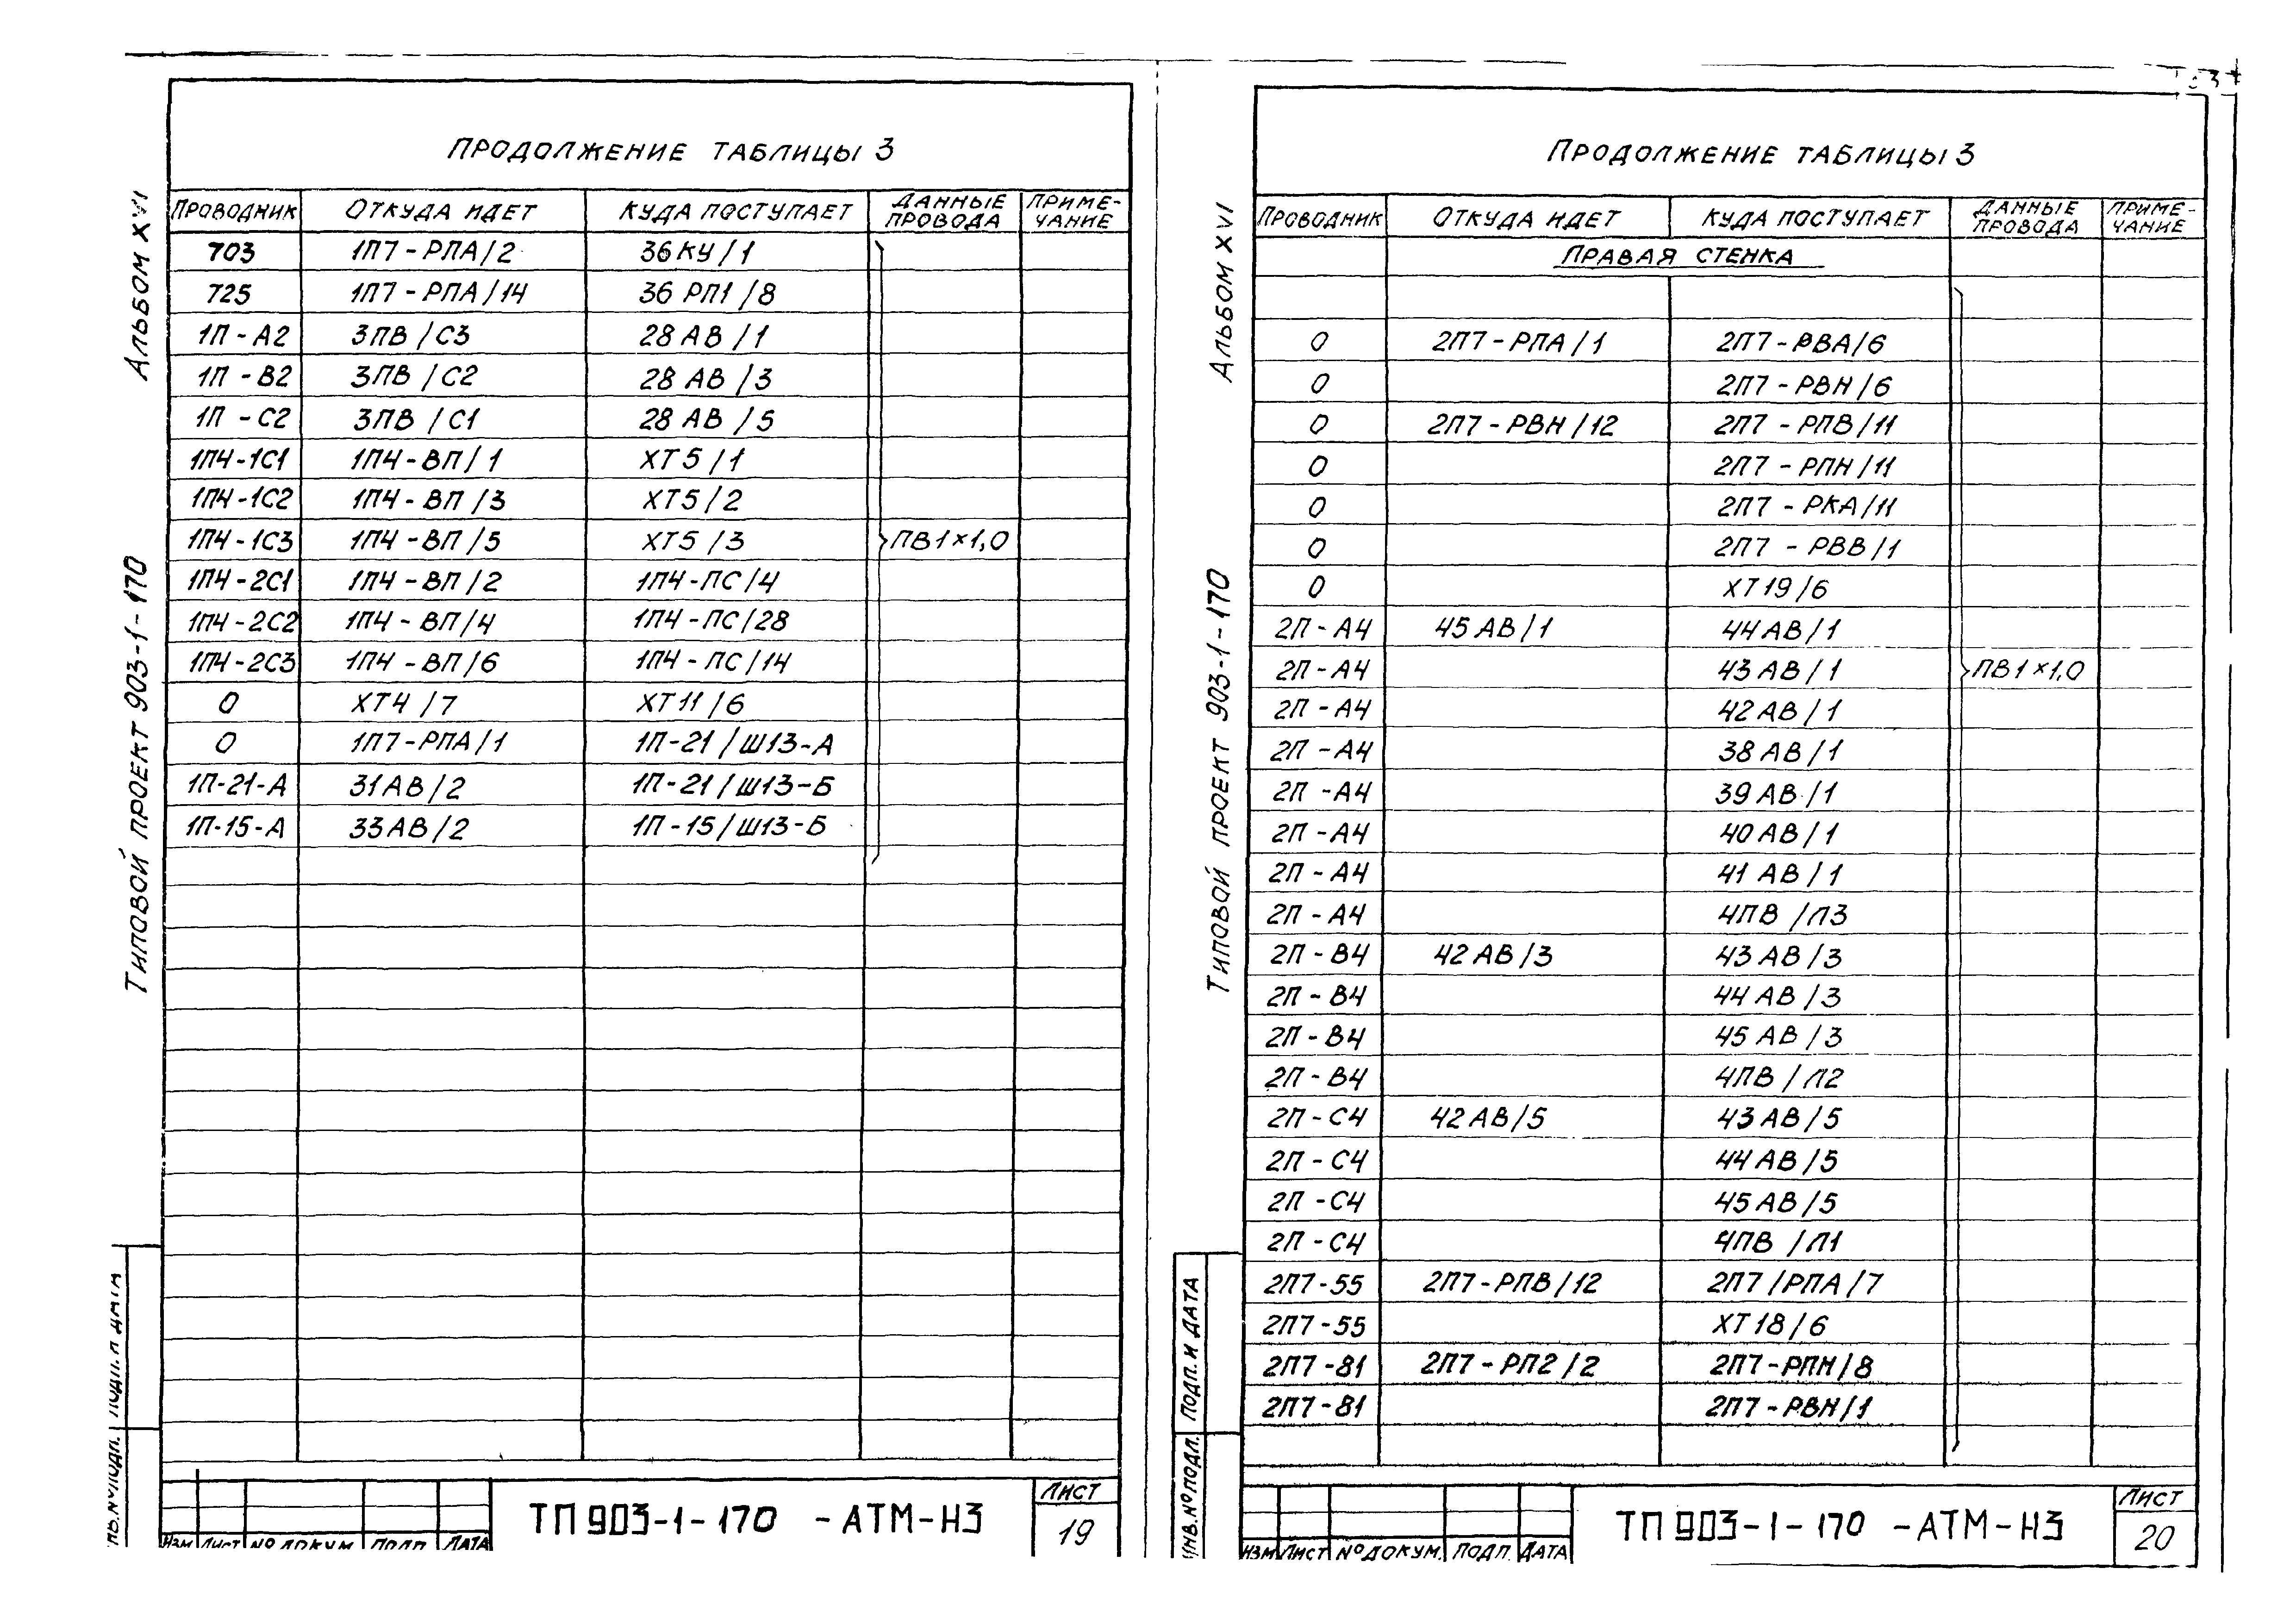 Продолжение таблицы 3
Проводник | Откуда идет | Куда поступает | Данные провода | Примечание
703 | 1П7-РПА/2 | 36КУ/1
725 | 1П7-РПА/14 | 36РП1/8
1П-А2 | 3ПВ/С3 | 28АВ/1
1П-В2 | 3ПВ/С2 | 28АВ/3
1П-С2 | 3ПВ/С1 | 28АВ/5
1П4-1С1 | 1П4-ВП/1 | ХТ5/1
1П4-1С2 | 1П4-ВП/3 | ХТ5/2
1П4-1С3 | 1П4-ВП/5 | ХТ5/3 | ПВ1×1,0
1П4-2С1 | 1П4-ВП/2 | 1П4-ПС/4
1П4-2С2 | 1П4-ВП/4 | 1П4-ПС/28
1П4-2С3 | 1П4-ВП/6 | 1П4-ПС/14
0 | ХТ4/7 | ХТ11/6
0 | 1П7-РПА/1 | 1П-21/Ш13-А
1П-21-А | 31АВ/2 | 1П-21/Ш13-Б
1П-15-А | 33АВ/2 | 1П-15/Ш13-Б
Альбом XVI
Типовой проект 903-1-170
Изм Лист № докум. Подп. Дата
ТП 903-1-170 -АТМ-НЗ
Лист
19
Продолжение таблицы 3
Проводник | Откуда идет | Куда поступает | Данные провода | Примечание
Правая стенка
0 | 2П7-РПА/1 | 2П7-РВА/6
0 | 2П7-РВН/6
0 | 2П7-РВН/12 | 2П7-РПВ/11
0 | 2П7-РПН/11
0 | 2П7-РКА/11
0 | 2П7-РВВ/1
0 | ХТ19/6
2П-А4 | 45АВ/1 | 44АВ/1
2П-А4 | 43АВ/1 | ПВ1×1,0
2П-А4 | 42АВ/1
2П-А4 | 38АВ/1
2П-А4 | 39АВ/1
2П-А4 | 40АВ/1
2П-А4 | 41АВ/1
2П-А4 | 4ПВ/Л3
2П-В4 | 42АВ/3 | 43АВ/3
2П-В4 | 44АВ/3
2П-В4 | 45АВ/3
2П-В4 | 4ПВ/Л2
2П-С4 | 42АВ/5 | 43АВ/5
2П-С4 | 44АВ/5
2П-С4 | 45АВ/5
2П-С4 | 4ПВ/Л1
2П7-55 | 2П7-РПВ/12 | 2П7/РПА/7
2П7-55 | ХТ18/6
2П7-81 | 2П7-РП2/2 | 2П7-РПН/8
2П7-81 | 2П7-РВН/1
Альбом XVI
Типовой проект 903-1-170
Инв. № подл. Подп. и дата
Изм Лист № докум. Подп. Дата
ТП 903-1-170 -АТМ-НЗ
Лист
20